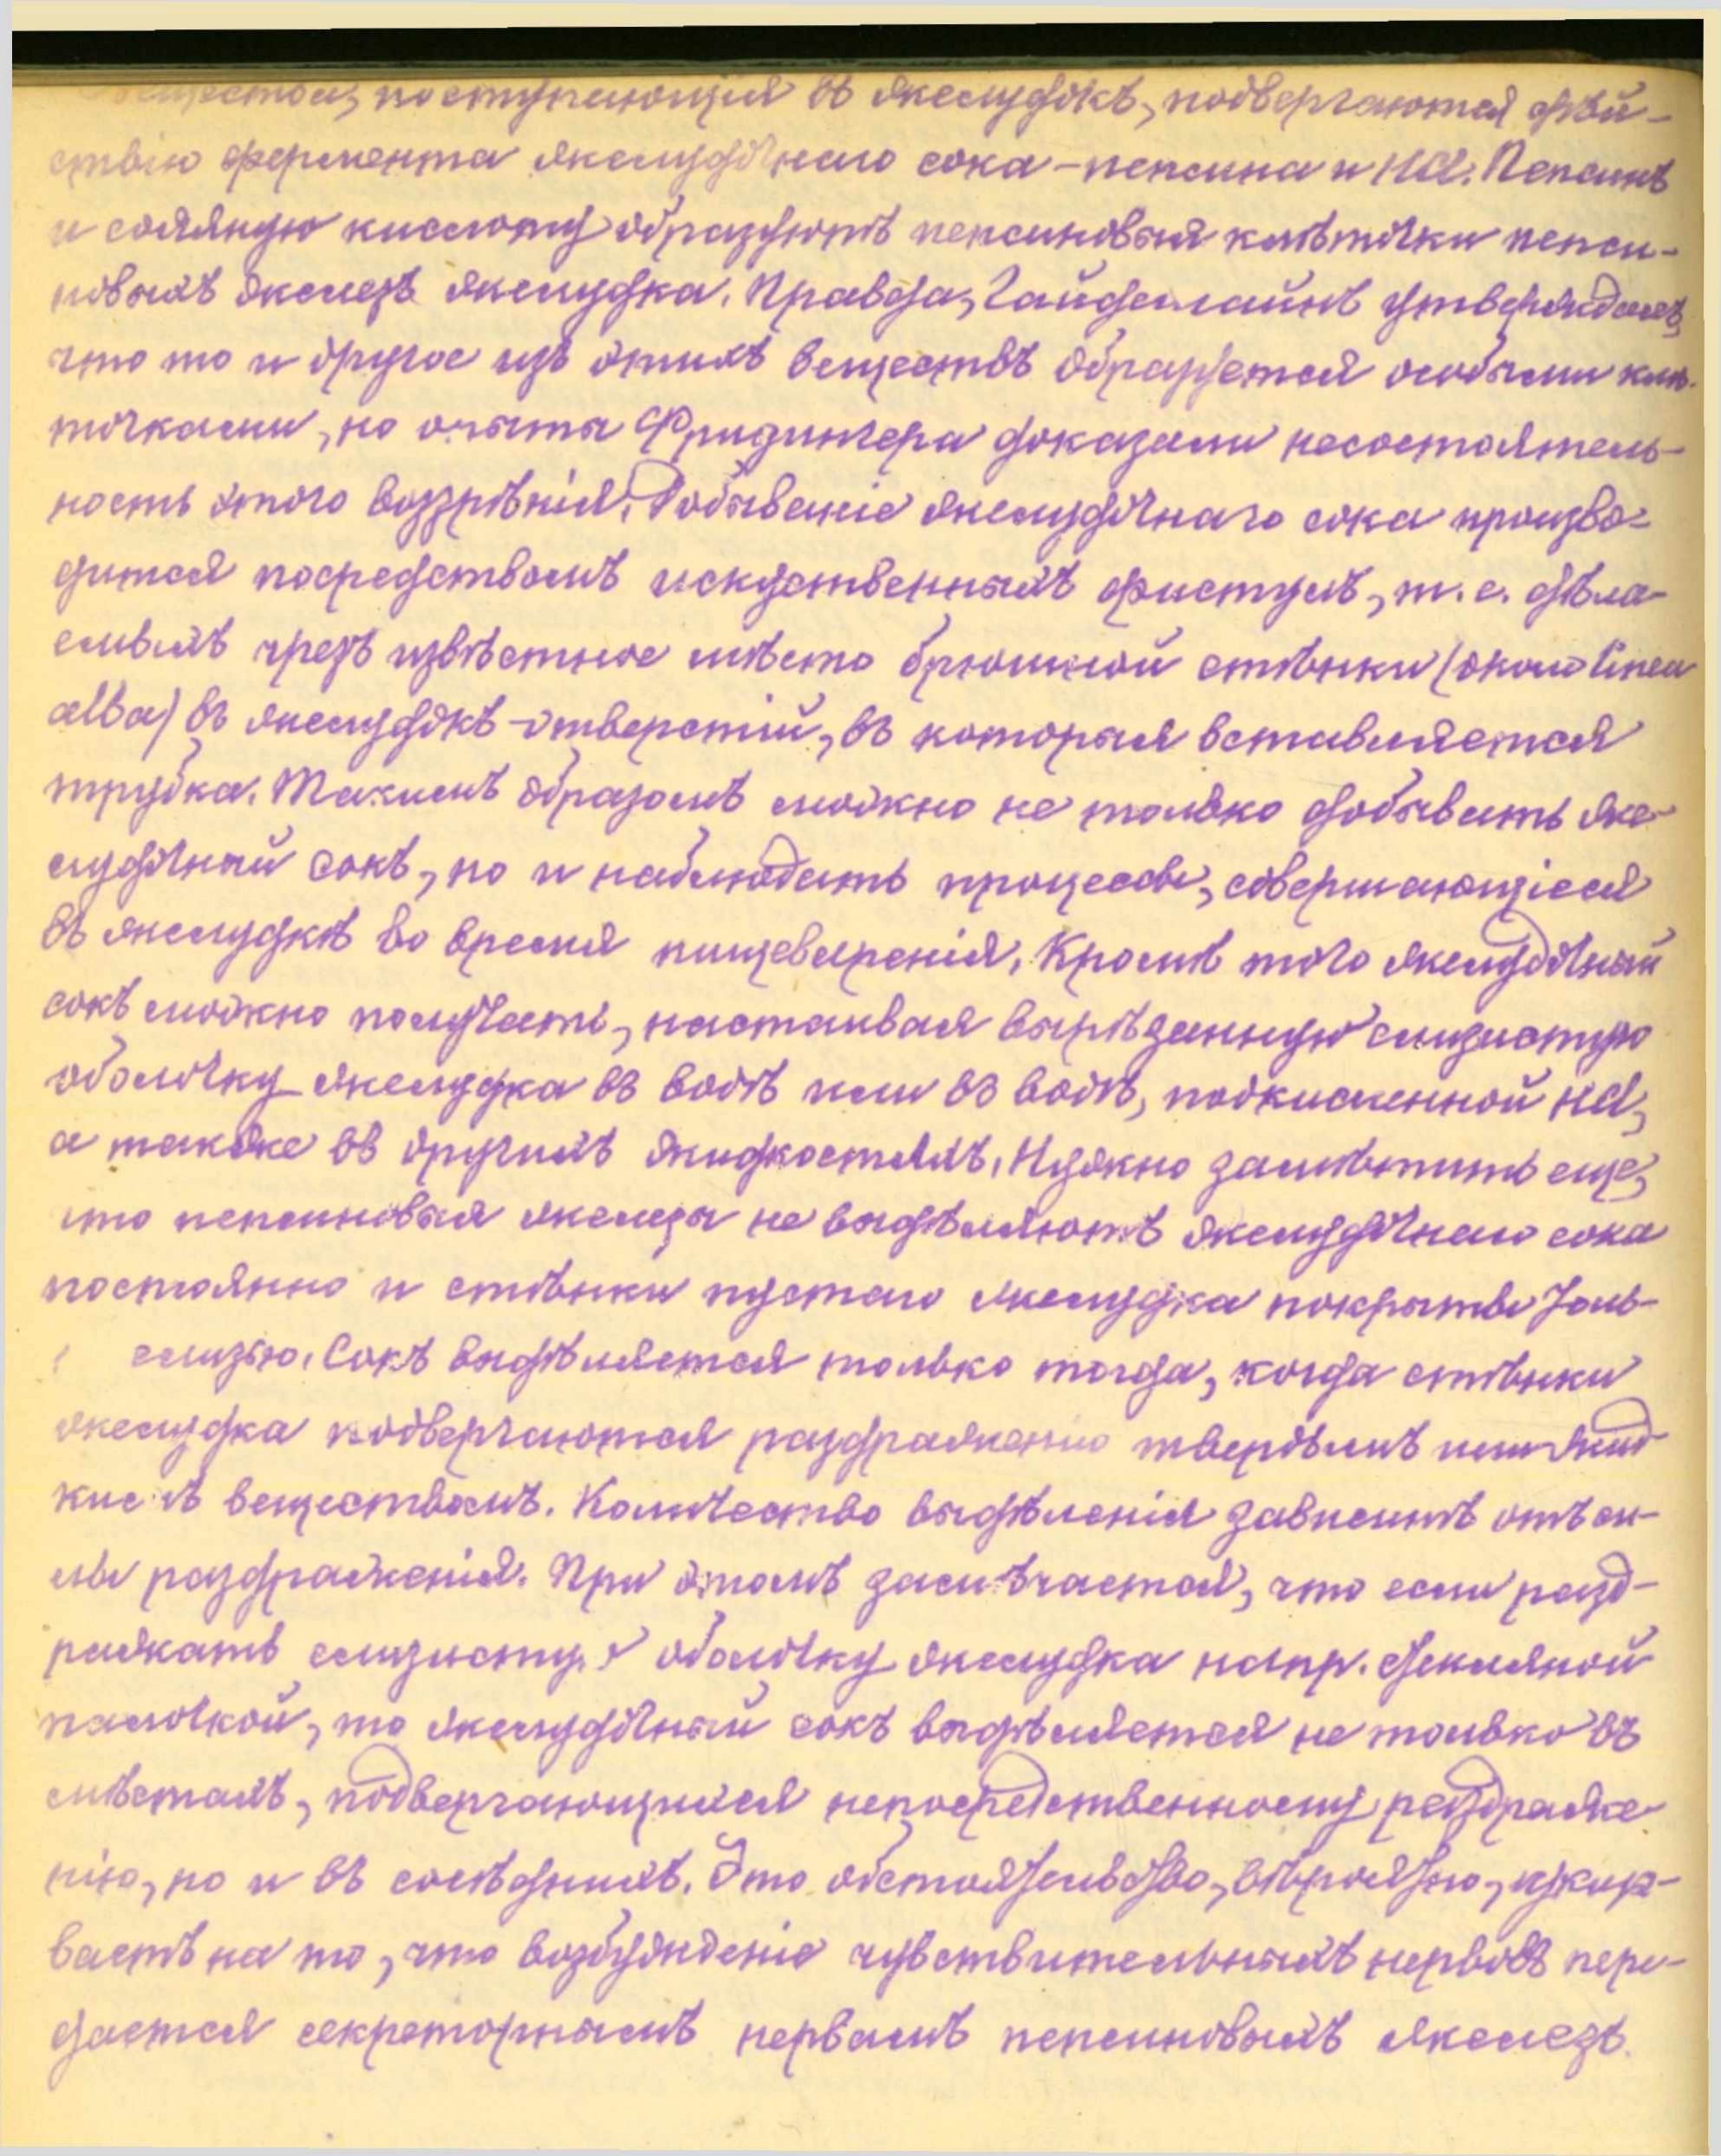 вещества, поступающія въ желудокъ, подвергаются дѣй-
ствію фермента желудочнаго сока - пепсина и HCl. Пепсинъ
и соляную кислоту образуютъ пепсиновыя клѣточки пепси-
новыхъ железъ желудка. Правда, Гайденгайнъ утверждалъ,
что то и другое изъ этихъ веществъ образуется особыми клѣ-
точками, но опыты Фридингера доказали несостоятель-
ность этого воззрѣнія. Добываніе желудочнаго сока произво-
дится посредствомъ искуственныхъ фистулъ, т. е. дѣла-
емыхъ чрезъ извѣстное мѣсто брюшной стѣнки (около linea
alba) въ желудокъ - отверстій, въ которыя вставляется
трубка. Такимъ образомъ можно не только добывать же-
лудочный сокъ, но и наблюдать процессы, совершающіеся
въ желудкѣ во время пищеваренія. Кромѣ того желудочный
сокъ можно получать, настаивая вырѣзанную слизистую
оболочку желудка въ водѣ или въ водѣ, подкисленной HCl,
а также въ другихъ жидкостяхъ. Нужно замѣтить еще,
что пепсиновыя железы не выдѣляютъ желудочнаго сока
постоянно и стѣнки пустаго желудка покрыты толь-
слизью. Сокъ выдѣляется только тогда, когда стѣнки
желудка подвергаются раздраженію твердымъ или жид-
кимъ веществомъ. Количество выдѣленія зависитъ отъ си-
лы раздраженія. При этомъ замѣчается, что если разд-
ражать слизистую оболочку желудка напр. стекляной
палочкой, то желудочный сокъ выдѣляется не только въ
мѣстахъ, подвергающихся непосредственному раздраже-
нію, но и въ сосѣднихъ. Это обстоятельство, вѣроятно, указы-
ваетъ на то, что возбужденіе чувствительныхъ нервовъ пере-
дается секреторнымъ нервамъ пепсиновыхъ железъ.